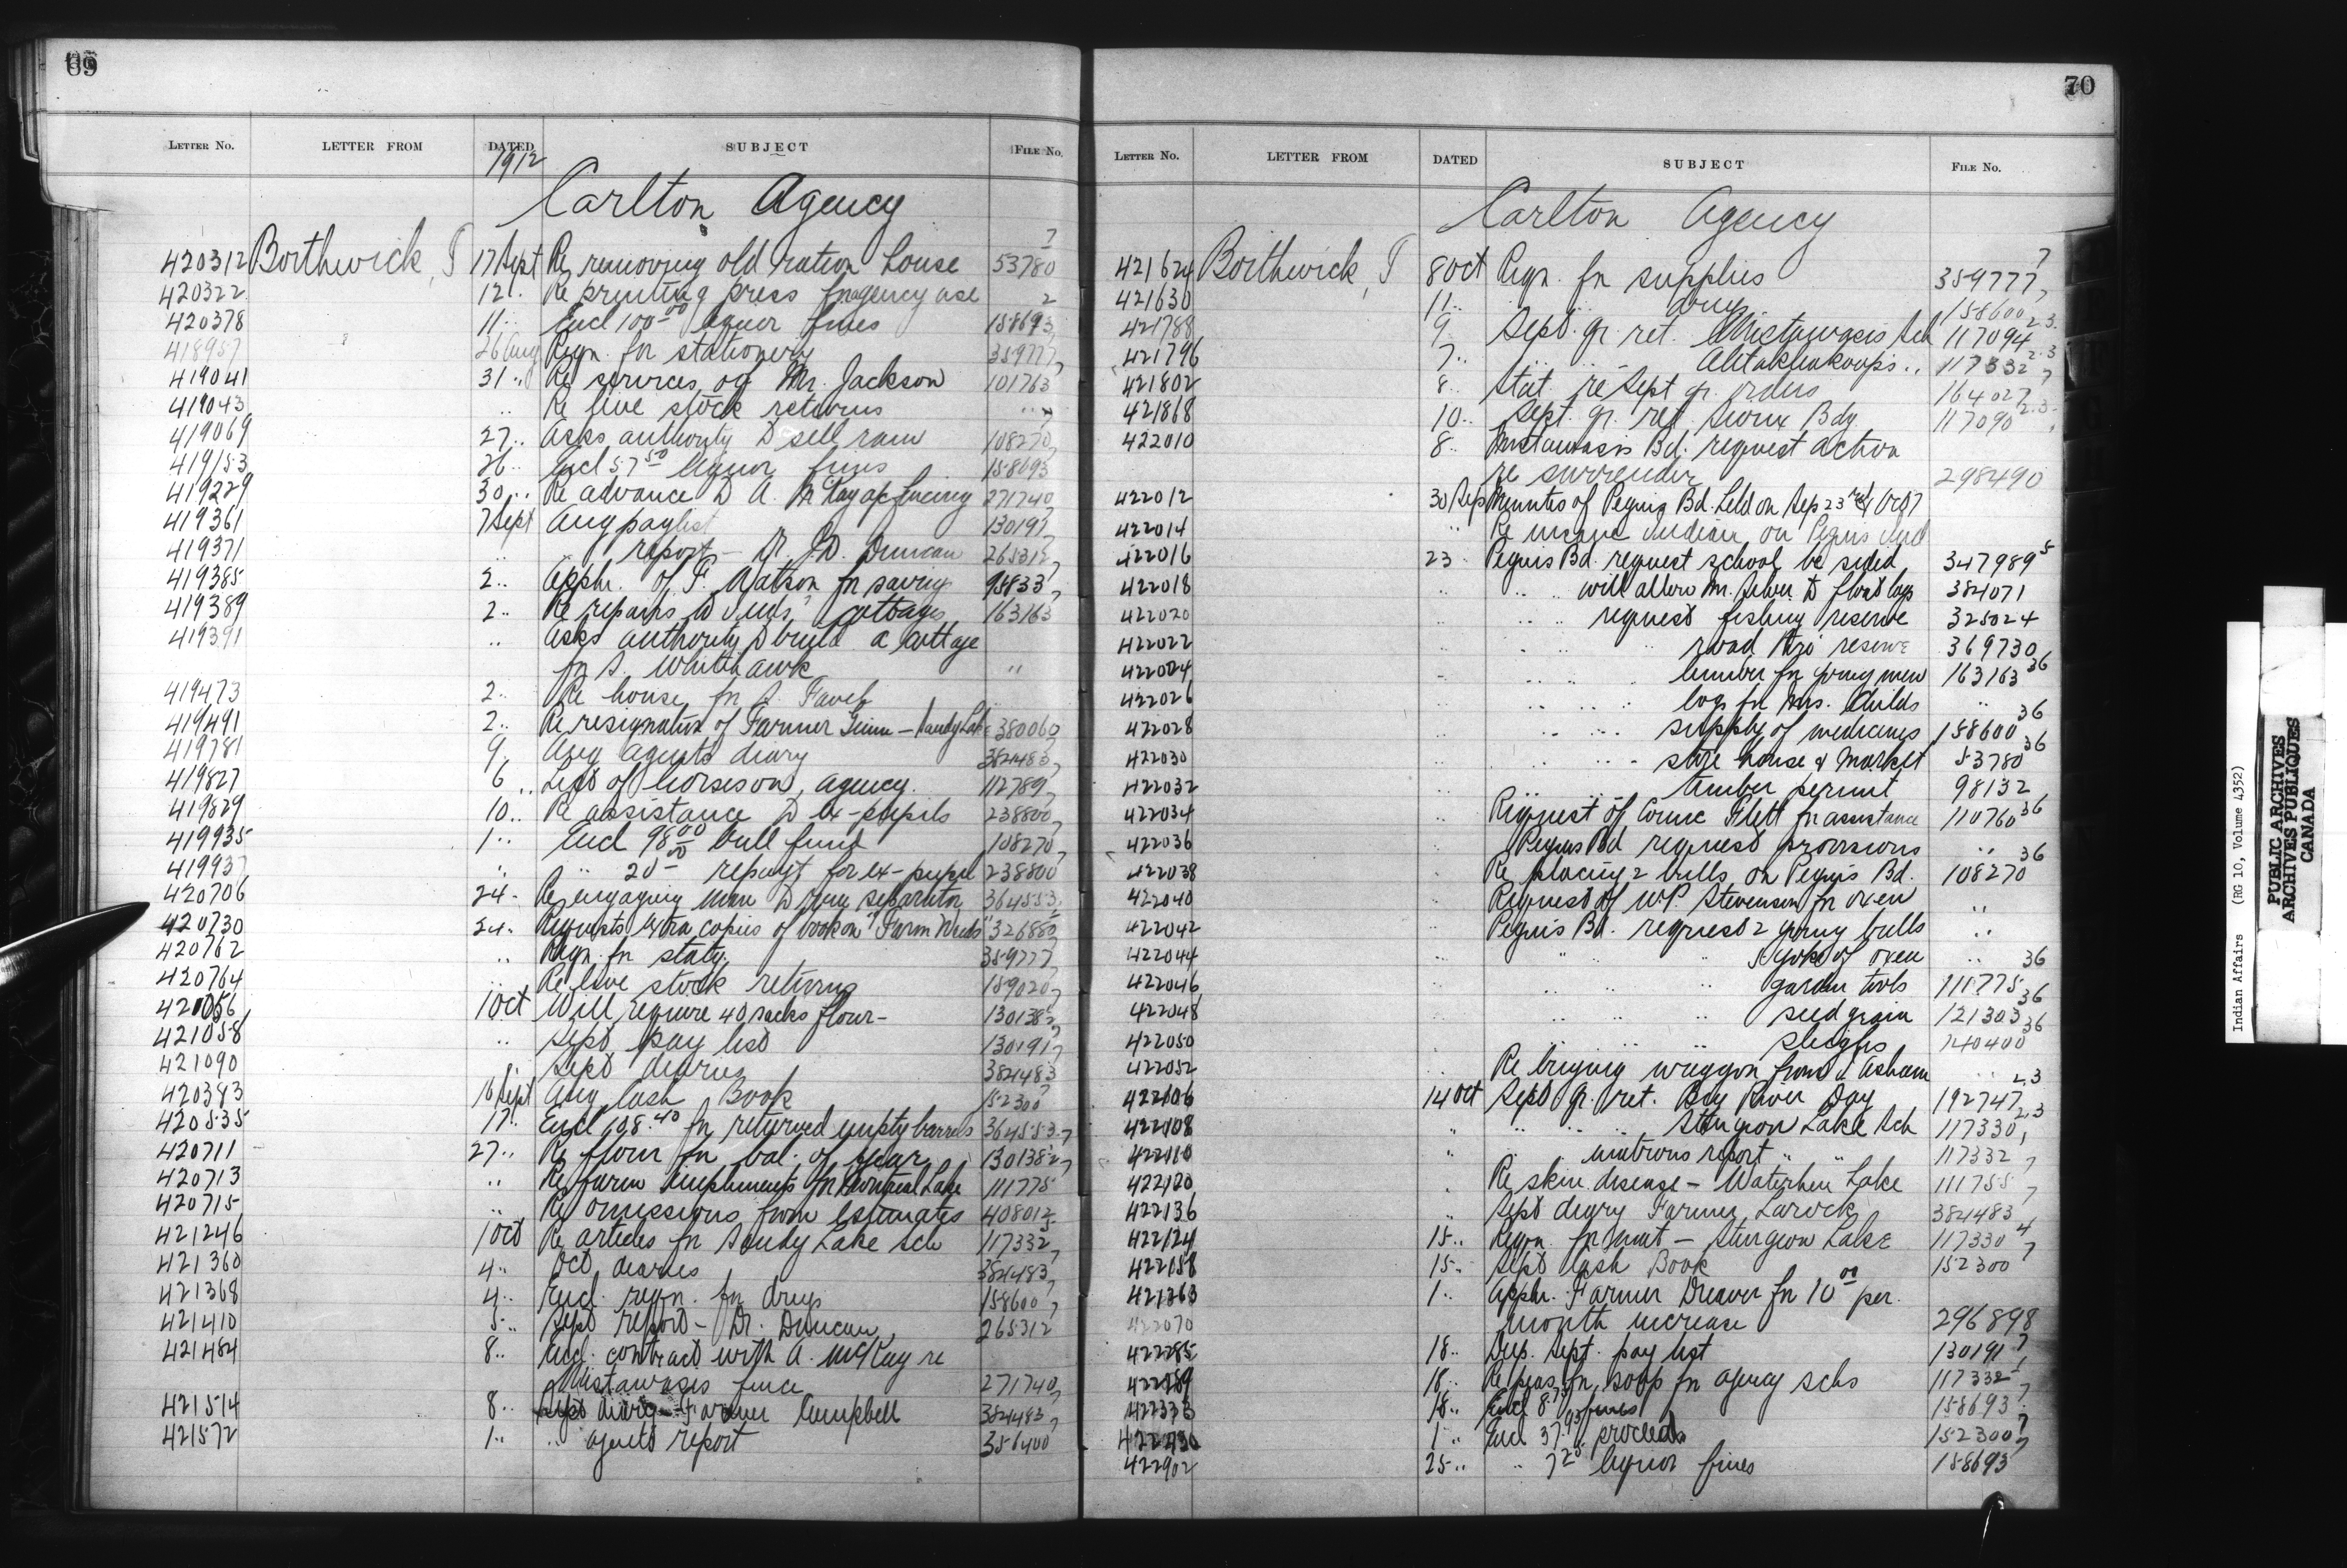 69
LETTER NO. LETTER FROM DATED SUBJECT FILE No.
1912
Carlton Agency
420312 Borthwick, T 17 Sept Re removing old ration house 53780 7
420322 12 .. Re printing press for agency use 2
420378 11 .. Encl 100.00 liquor fines 158693
418957 26 Aug Reqn. for stationery 359777
419041 31 .. Re services of Mr. Jackson 101763
419043 .. Re live stock returns ..
419069 27 .. Asks authority to sell ram 108270
419153 26 .. Encl 57.50 liquor fines 158693
419229 30 .. Re advance to A. McKay a/c fencing 271740
419361 7 Sept Aug paylist 130191
419371 .. report - Dr. J.D. Duncan 265312
419385 2 .. Apphn. of F. Watson for 95833
419389 2 .. Re repairs to Inds' cottages 163163
419391 .. Asks authority to build a cottage
for S. Whitehawk ..
419473 2 .. Re house for
419491 2 .. Re resignation of Farmer - Sandy Lake 380060
419781 9 Aug agents diary 384483
419827 6 .. List of horses on agency 112789
419829 10 .. Re assistance to ex-pupils 238800
419935 1 .. Encl 98.00 bull fund 108270
419937 .. .. 20.00 repayt for ex-pupil 238800
420706 24 .. Re engaging man to run separator 364553
420730 24 .. Requests extra copies of book on "Farm Weeds" 326880
420762 .. Reqn. for staty. 359777
420764 .. Re live stock returns 159020
421056 1 Oct Will require 40 sacks flour - 130138
421058 .. Sept pay list 130191
421090 .. Sept diaries 384483
420383 16 Sept Aug Cash Book 152300
420535 17 .. Encl 198.40 for returned empty barrels 364553
420711 27 .. Re flour for bal. of year 130138
420713 .. Re farm implements for Montreal Lake 111775
420715 .. Re omissions from estimates 408012
421246 1 Oct Re articles for Sandy Lake Sch 117332
421360 4 .. Oct diaries 384483
421368 4 .. Encl. reqn. for drugs 158600
421410 5 .. Sept report - Dr. Duncan 265312
421484 8 .. Encl. contract with A. McKay re
Mistawasis fence 271740
421514 8 .. Sept diary - Farmer Campbell 384483
421572 1 .. .. agents report 356400
70
LETTER NO. LETTER FROM DATED SUBJECT FILE No.
Carlton Agency
421624 Borthwick, T 8 Oct Reqn. for supplies 359777 7
421630 11 .. drugs 158600
421788 9 Sept. qr. ret. Mistawasis Sch 117094 2.3
421796 7 .. .. .. Ahtahkakoops .. 117332 2.3
421802 8 .. Stat. re Sept qr. orders 164027
421868 10 .. Sept. qr. ret. Sioux Bdg. 117090 2.3
422010 8 .. Mistawasis Bd. request action
re surrender 298490
422012 30 Sep Minutes of Peguis Bd. held on Sep 23rd & Oct 7
422014 .. Re insane Indian on Peguis Ind
422016 23 .. Peguis Bd. request school be sided 347989 5
422018 .. .. .. will allow Mr. to float logs 384071
422020 .. .. .. request fishing reserve 325024
422022 .. road thro' reserve 369730
422024 .. lumber for young men 163163 36
422026 logs for Mrs. Childs ..
422028 supply of medicines 158600 36
422030 store house & market 53780 36
422032 timber permit 98132
422034 .. Request of Flett for assistance 110760 36
422036 Peguis Bd request provisions ..
422038 Re placing 2 bulls on Peguis Bd. 108270 36
422040 Request of W.P. Stevenson for oxen ..
422042 Peguis Bd. request 2 young bulls ..
422044 5 yoke of oxen .. 36
422046 garden tools 111775
422048 seed grain 121303 36
422050 sleighs 140400 36
422052 Re buying waggon from Asham ..
422106 14 Oct Sept qr. ret. Big River Day 192747 2.3
422108 .. Sturgeon Lake Sch 117330 2.3
422110 .. .. matrons report .. .. 117332
422120 .. Re skin disease - Waterhen Lake 111755
422136 .. Sept diary Farmer Larock 384483
422124 15 .. Reqn. for meat - Sturgeon Lake 117330 4
422158 15 .. Sept Cash Book 152300 7
421363 1 .. Apphn. Farmer Dreaver for 10.00 per
422070 month increase 296898
422285 18 .. Dup. Sept. pay list 130191
422289 18 .. Re peas for soup for agency schs 117332
422373 18 .. Encl 8.75 fines 158693
1 .. Encl 37.95 proceeds 152300 7
422902 25 .. .. 7.20 liquor fines 158693
Indian Affairs (RG 10, Volume 4352)
PUBLIC ARCHIVES
ARCHIVES PUBLIQUES
CANADA